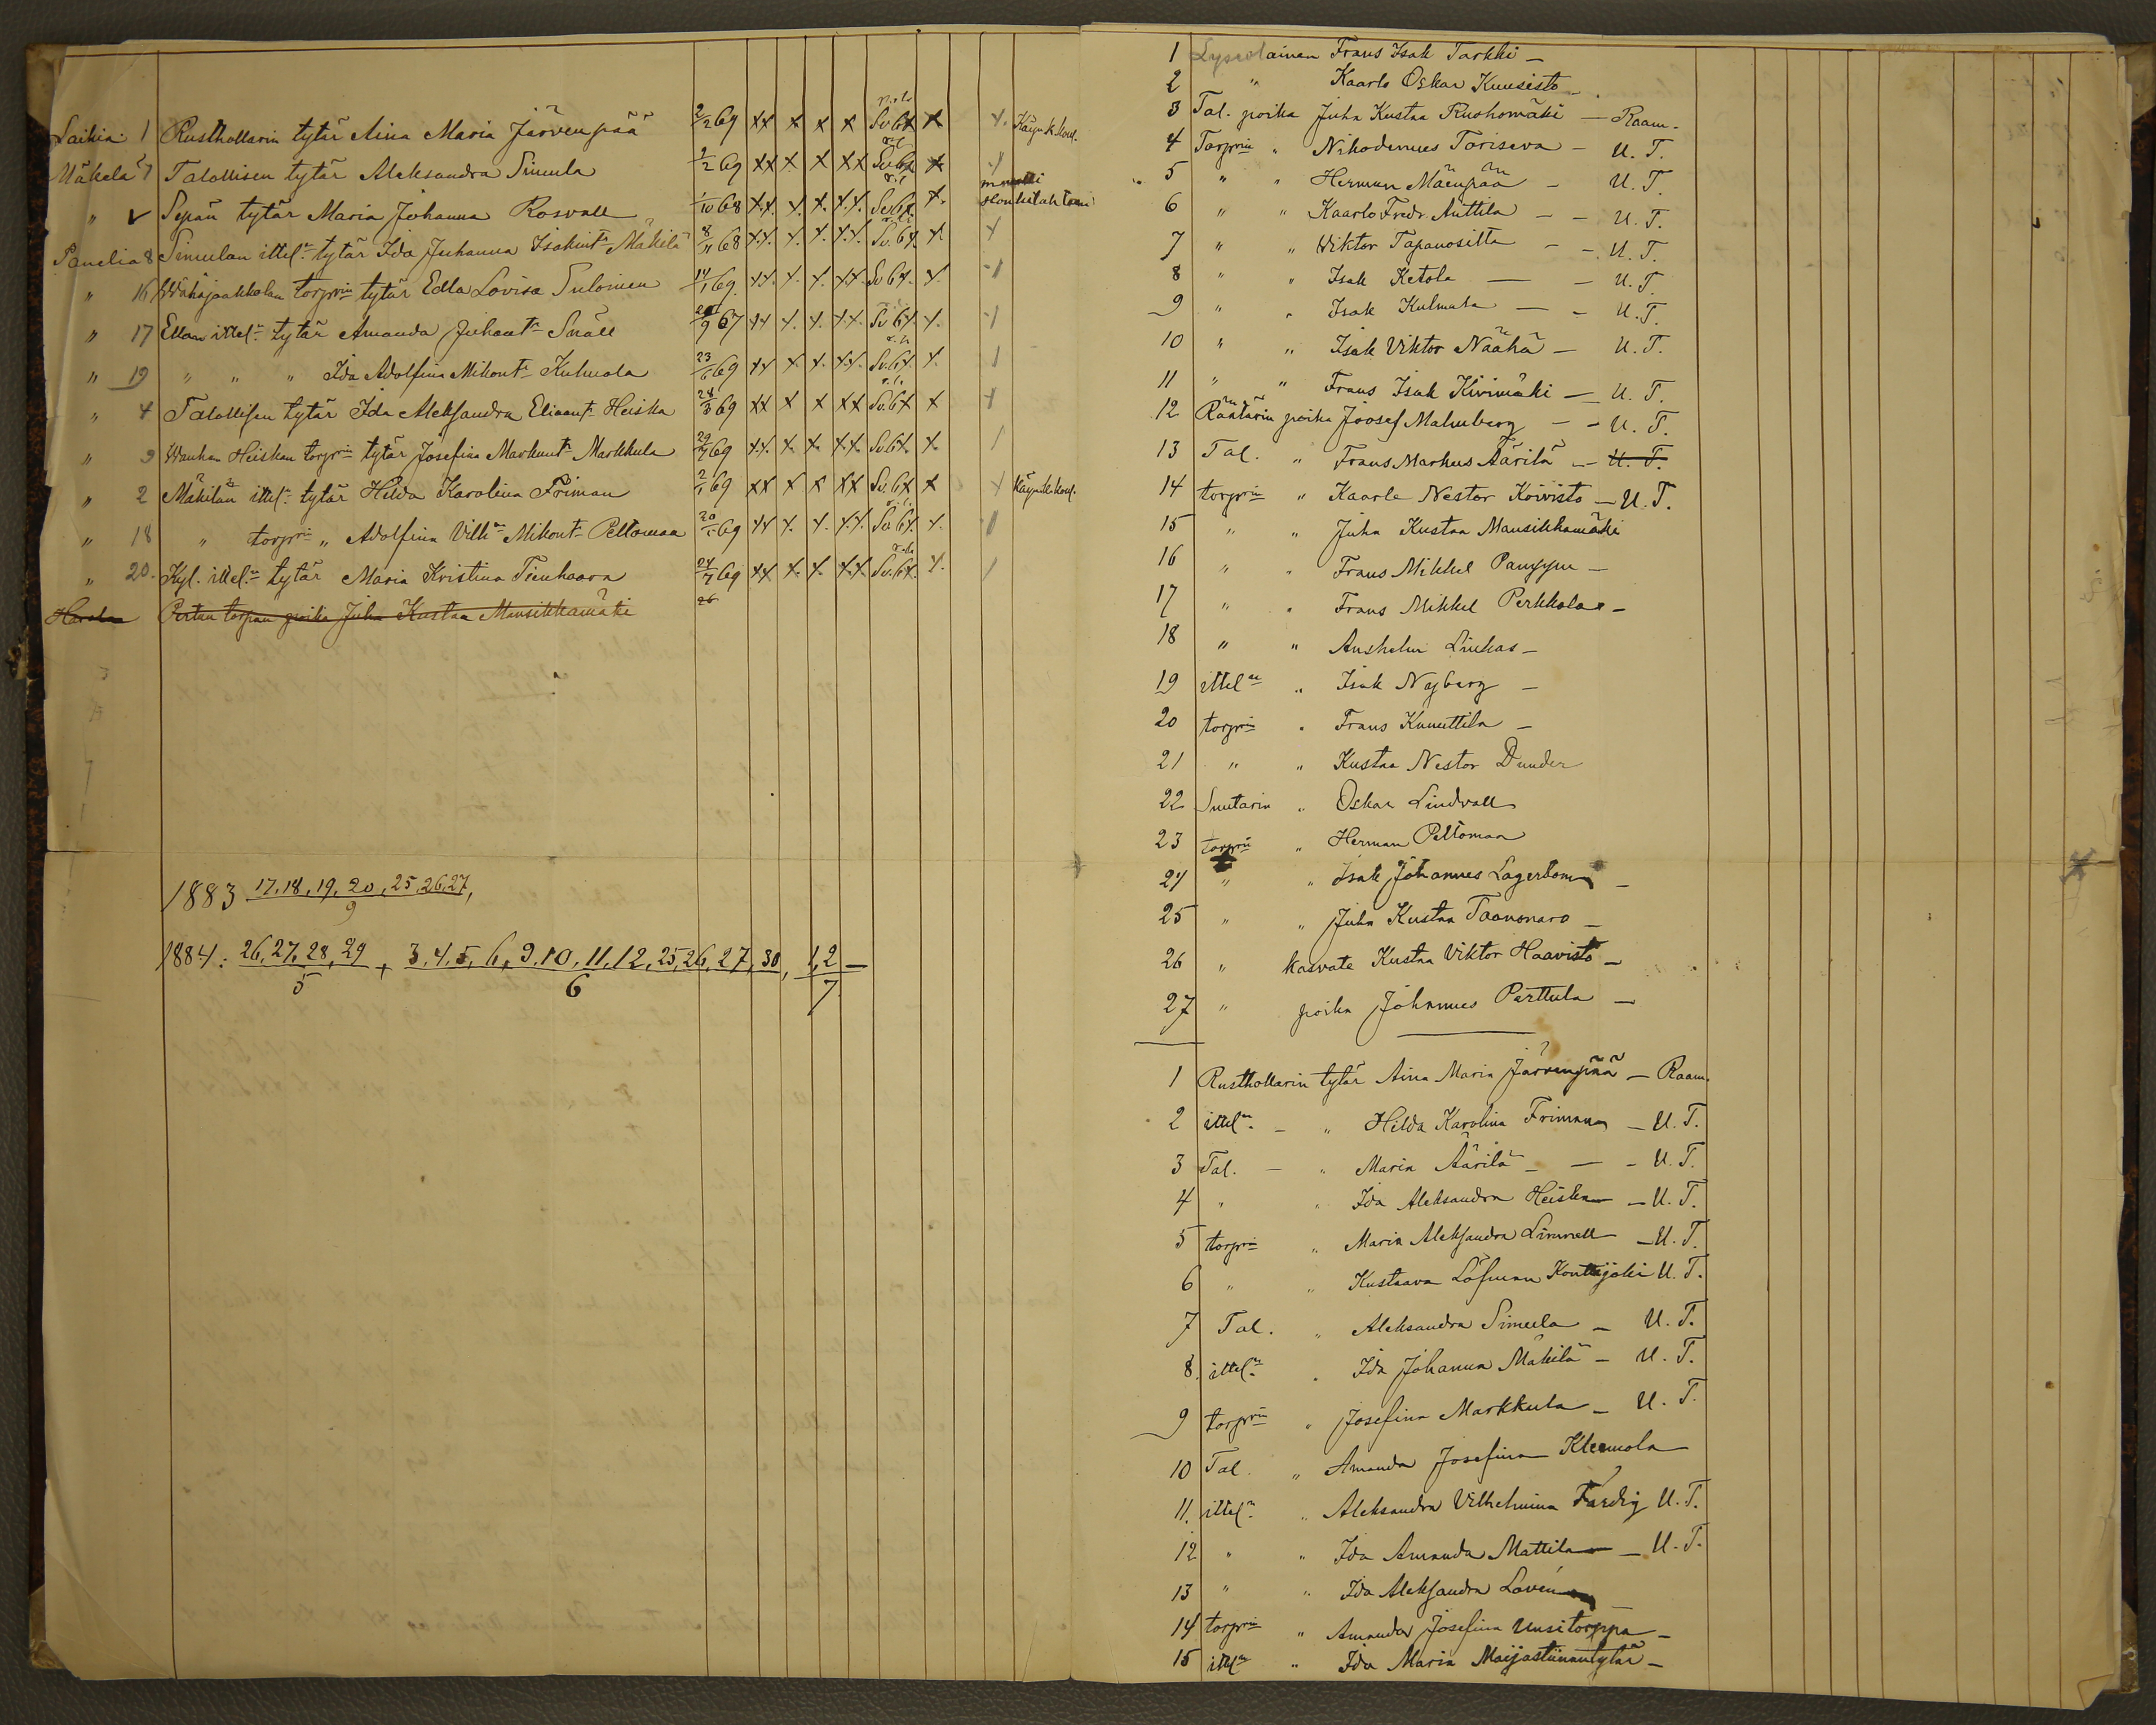 Laikia 1 Rusthollarin tytär Aina Maria Järvenpää 2/2 69 xx x x x Sv. 6x x x. Käyn k. koul.
Mäkelä 7 Talollisen tytär Aleksandra Simula 2/2 69 xx x. x xx Sv. 6x x
" Sepän tytär Maria Johanna Rosvall 1/10 68 x.x. x. x. x.x. Sv. 6x. x.
Panelia 8 Simulan ittel:n tytär Ida Juhanna Isakint:r Mäkilä 8/11 68 x.x. x. x. x.x. Sv. 6x. x.
" 16 Wähäjaakkolan torprin tytär Edla Lovisa Sulonen 14/1 69. xx. x. x. x.x. Sv. 6x. x.
" 17 Ellan ittel:n tytär Amanda Juhant:r Snäll 9 67 xx x. x. x.x. Sv. 6x. x.
" 19 " " " Ida Adolfina Mikont:r Kulmala 23/6 69 xx x x. x.x. Sv. 6x. x.
" 4 Talollisen tytär Ida Aleksandra Eliaant:r Heiska 28/3 69 xx x x xx Sv. 6x x
" 9 Wanhan Heiskan torprin tytär Josefina Markunt:r Markkula 69 x.x. x. x. x.x. Sv. 6x. x.
" 2 Mäkilän ittel:n tytär Hilda Karolina Friman 2/1 69 xx x x xx Sv. 6x x x Käyn k. koul.
" 18 " torprin " Adolfina Vilh:a Mikont:r Peltomaa 20 69 xx x. x. x.x. Sv. 6x. x.
" 20. Kyl. ittel:n tytär Maria Kristina Tienhaara 24/7 69 xx x. x. x.x. Sv. 6x. x.
Pertun torpan poika Juha Kustaa Mansikkamäki 26
1883 17, 18, 19, 20, 25, 26, 27,
9
1884: 26, 27, 28, 29 + 3. 4. 5, 6, 9, 10, 11, 12, 25, 26, 27, 30, 1, 2 —
5 6 7
1 Lyseolainen Frans Isak Tarkki —
2 " Kaarlo Oskar Kuusisto —
3 Tal. poika Juha Kustaa Ruohomäki — Raam.
4 Torprin " Nikodemus Toriseva — U. T.
5 " " Herman Mäenpään — U. T.
6 " " Kaarlo Fredr. Anttila — — U. T.
7 " " Wiktor Tapanositta — — U. T.
8 " " Isak Ketola — — U. T.
9 " " Isak Kulmala — — U. T.
10 " " Isak Viktor Näähä — U. T.
11 " " Frans Isak Kivimäki — U. T.
12 Räätärin poika Joosef Malmberg — — U. T.
13 Tal. " Frans Markus Äärilä — U. T.
14 torprin " Kaarle Nestor Koivisto — U. T.
15 " " Juha Kustaa Mansikkamäki
16 " " Frans Mikkel —
17 " " Frans Mikkel Perkkola —
18 " " Anshelm Liukas —
19 ittel:n " Isak Nyberg —
20 torprin " Frans Knuuttila —
21 " " Kustaa Nestor Dunder
22 Suutarin " Oskar Lindvall
23 torprin " Herman Peltomaa
24 " " Isak Johannes Lagerbom —
25 " " Juha Kustaa Taanonaro —
26 " kasvate Kustaa Viktor Haavisto —
27 " poika Johannes Perttula —
1 Rusthollarin tytär Aina Maria Järvenpää — Raam.
2 ittel:n — " Hilda Karolina Friman — U. T.
3 Tal. — " Maria Äärilä — — — U. T.
4 " " Ida Aleksandra Heiska — U. T.
5 torprin " Maria Aleksandra Linnell — U. T.
6 " " Kustaava Löfman Konttijoki U. T.
7 Tal. " Aleksandra Simula — U. T.
8. ittel:n " Ida Johanna Mäkilä — U. T.
9 torprin " Josefina Markkula — U. T.
10 Tal. " Amanda Josefina Kleemola
11. ittel:n " Aleksandra Vilhelmina Färdig U. T.
12 " " Ida Amanda Mattila — U. T.
13 " " Ida Aleksandra Lovén
14 torprin " Amanda Josefina Uusitorppa —
15 ittel:n " Ida Maria Maijastiinantytär —